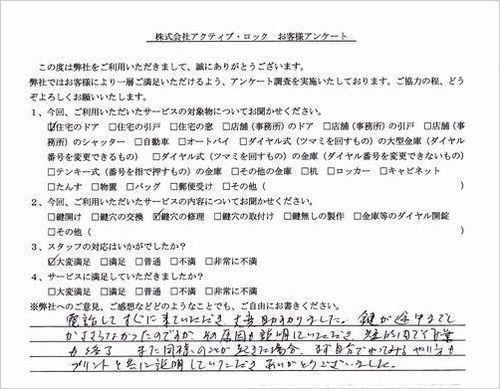 株式会社アクティブ・ロック　お客様アンケート
この度は弊社をご利用いただきまして、誠にありがとうございます。
弊社ではお客様により一層ご満足いただけるよう、アンケート調査を実施いたしております。ご協力の程、どう
ぞよろしくお願いいたします。
1、今回、ご利用いただいたサービスの対象物についてお聞かせください。
☑住宅のドア　□住宅の引戸　□住宅の窓　□店舗（事務所）のドア　□店舗（事務所）の引戸　□店舗（事務所）
のシャッター　□自動車　□オートバイ　□ダイヤル式（ツマミを回すもの）の大型金庫（ダイヤル
番号を変更できるもの）　□ダイヤル式（ツマミを回すもの）の金庫（ダイヤル番号を変更できないもの）
□テンキー式（番号を指で押すもの）の金庫　□その他の金庫　□机　□ロッカー　□キャビネット
□たんす　□物置　□バッグ　□郵便受け　□その他（　　　　）
2、今回、ご利用いただいたサービスの内容についてお聞かせください。
□鍵開け　□鍵穴の交換　☑鍵穴の修理　□鍵穴の取付け　□鍵無しの製作　□金庫等のダイヤル開錠
□その他（　　　　）
3、スタッフの対応はいかがでしたか？
☑大変満足　□満足　□普通　□不満　□非常に不満
4、サービスに満足していただきましたか？
☑大変満足　□満足　□普通　□不満　□非常に不満
※弊社へのご意見、ご感想などどのようなことでも、ご自由にお書きください。
電話してすぐに来ていただき 大変助かりました。鍵が途中まで
かささらなかったのですが、その原因も説明していただき 短時間で作業
も終了 また同様のことが起きた場合、まず自分でやってみるやり方も
プリントと共に説明していただき ありがとうございました。